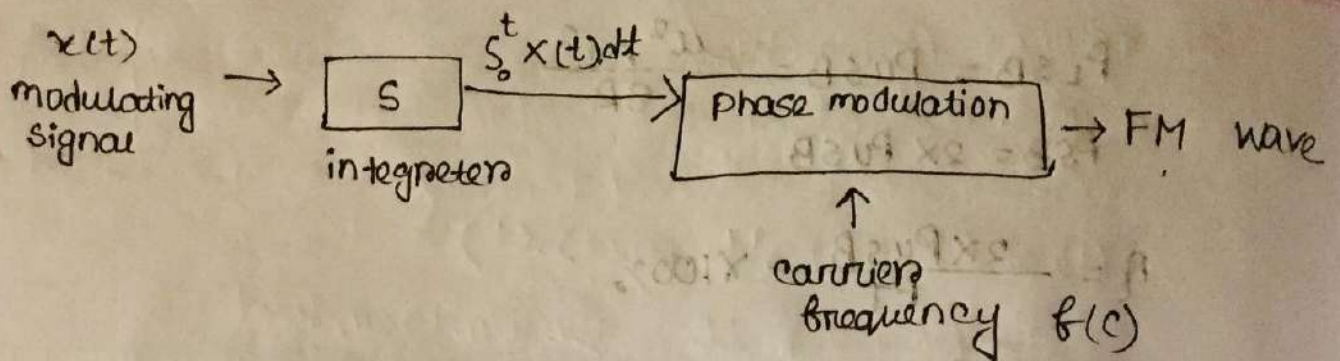 x(t)
modulating
signal
→
S
integreters
S₀ᵗ x(t).dt
phase modulation
→ FM wave
↑
carriers
frequency f(c)